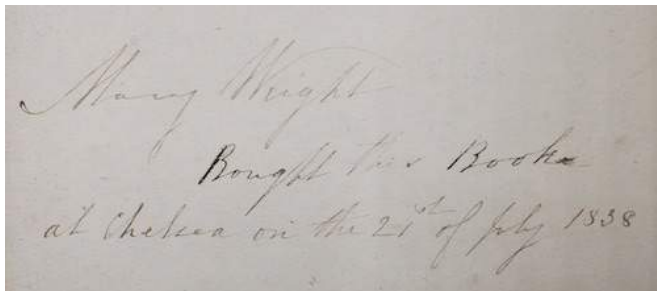 Mary Wright
Bought this Book
at Chelsea on the 21st of July 1838